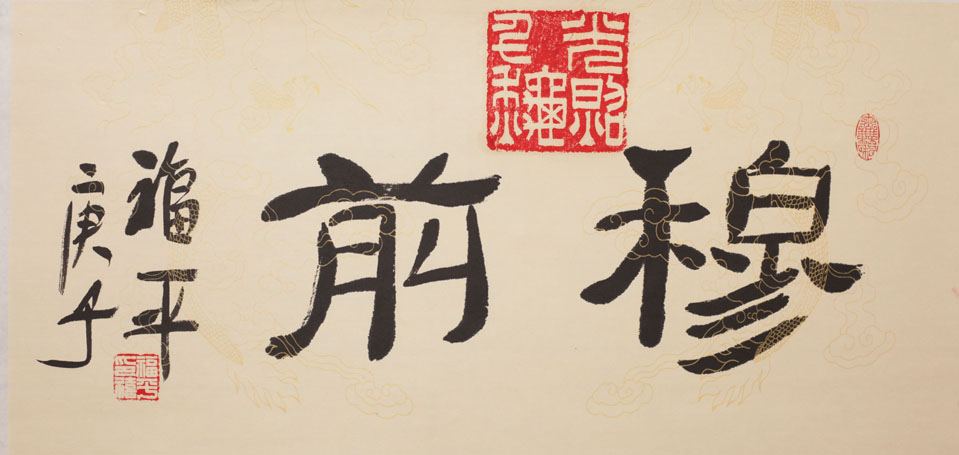 穆前
福平
庚子